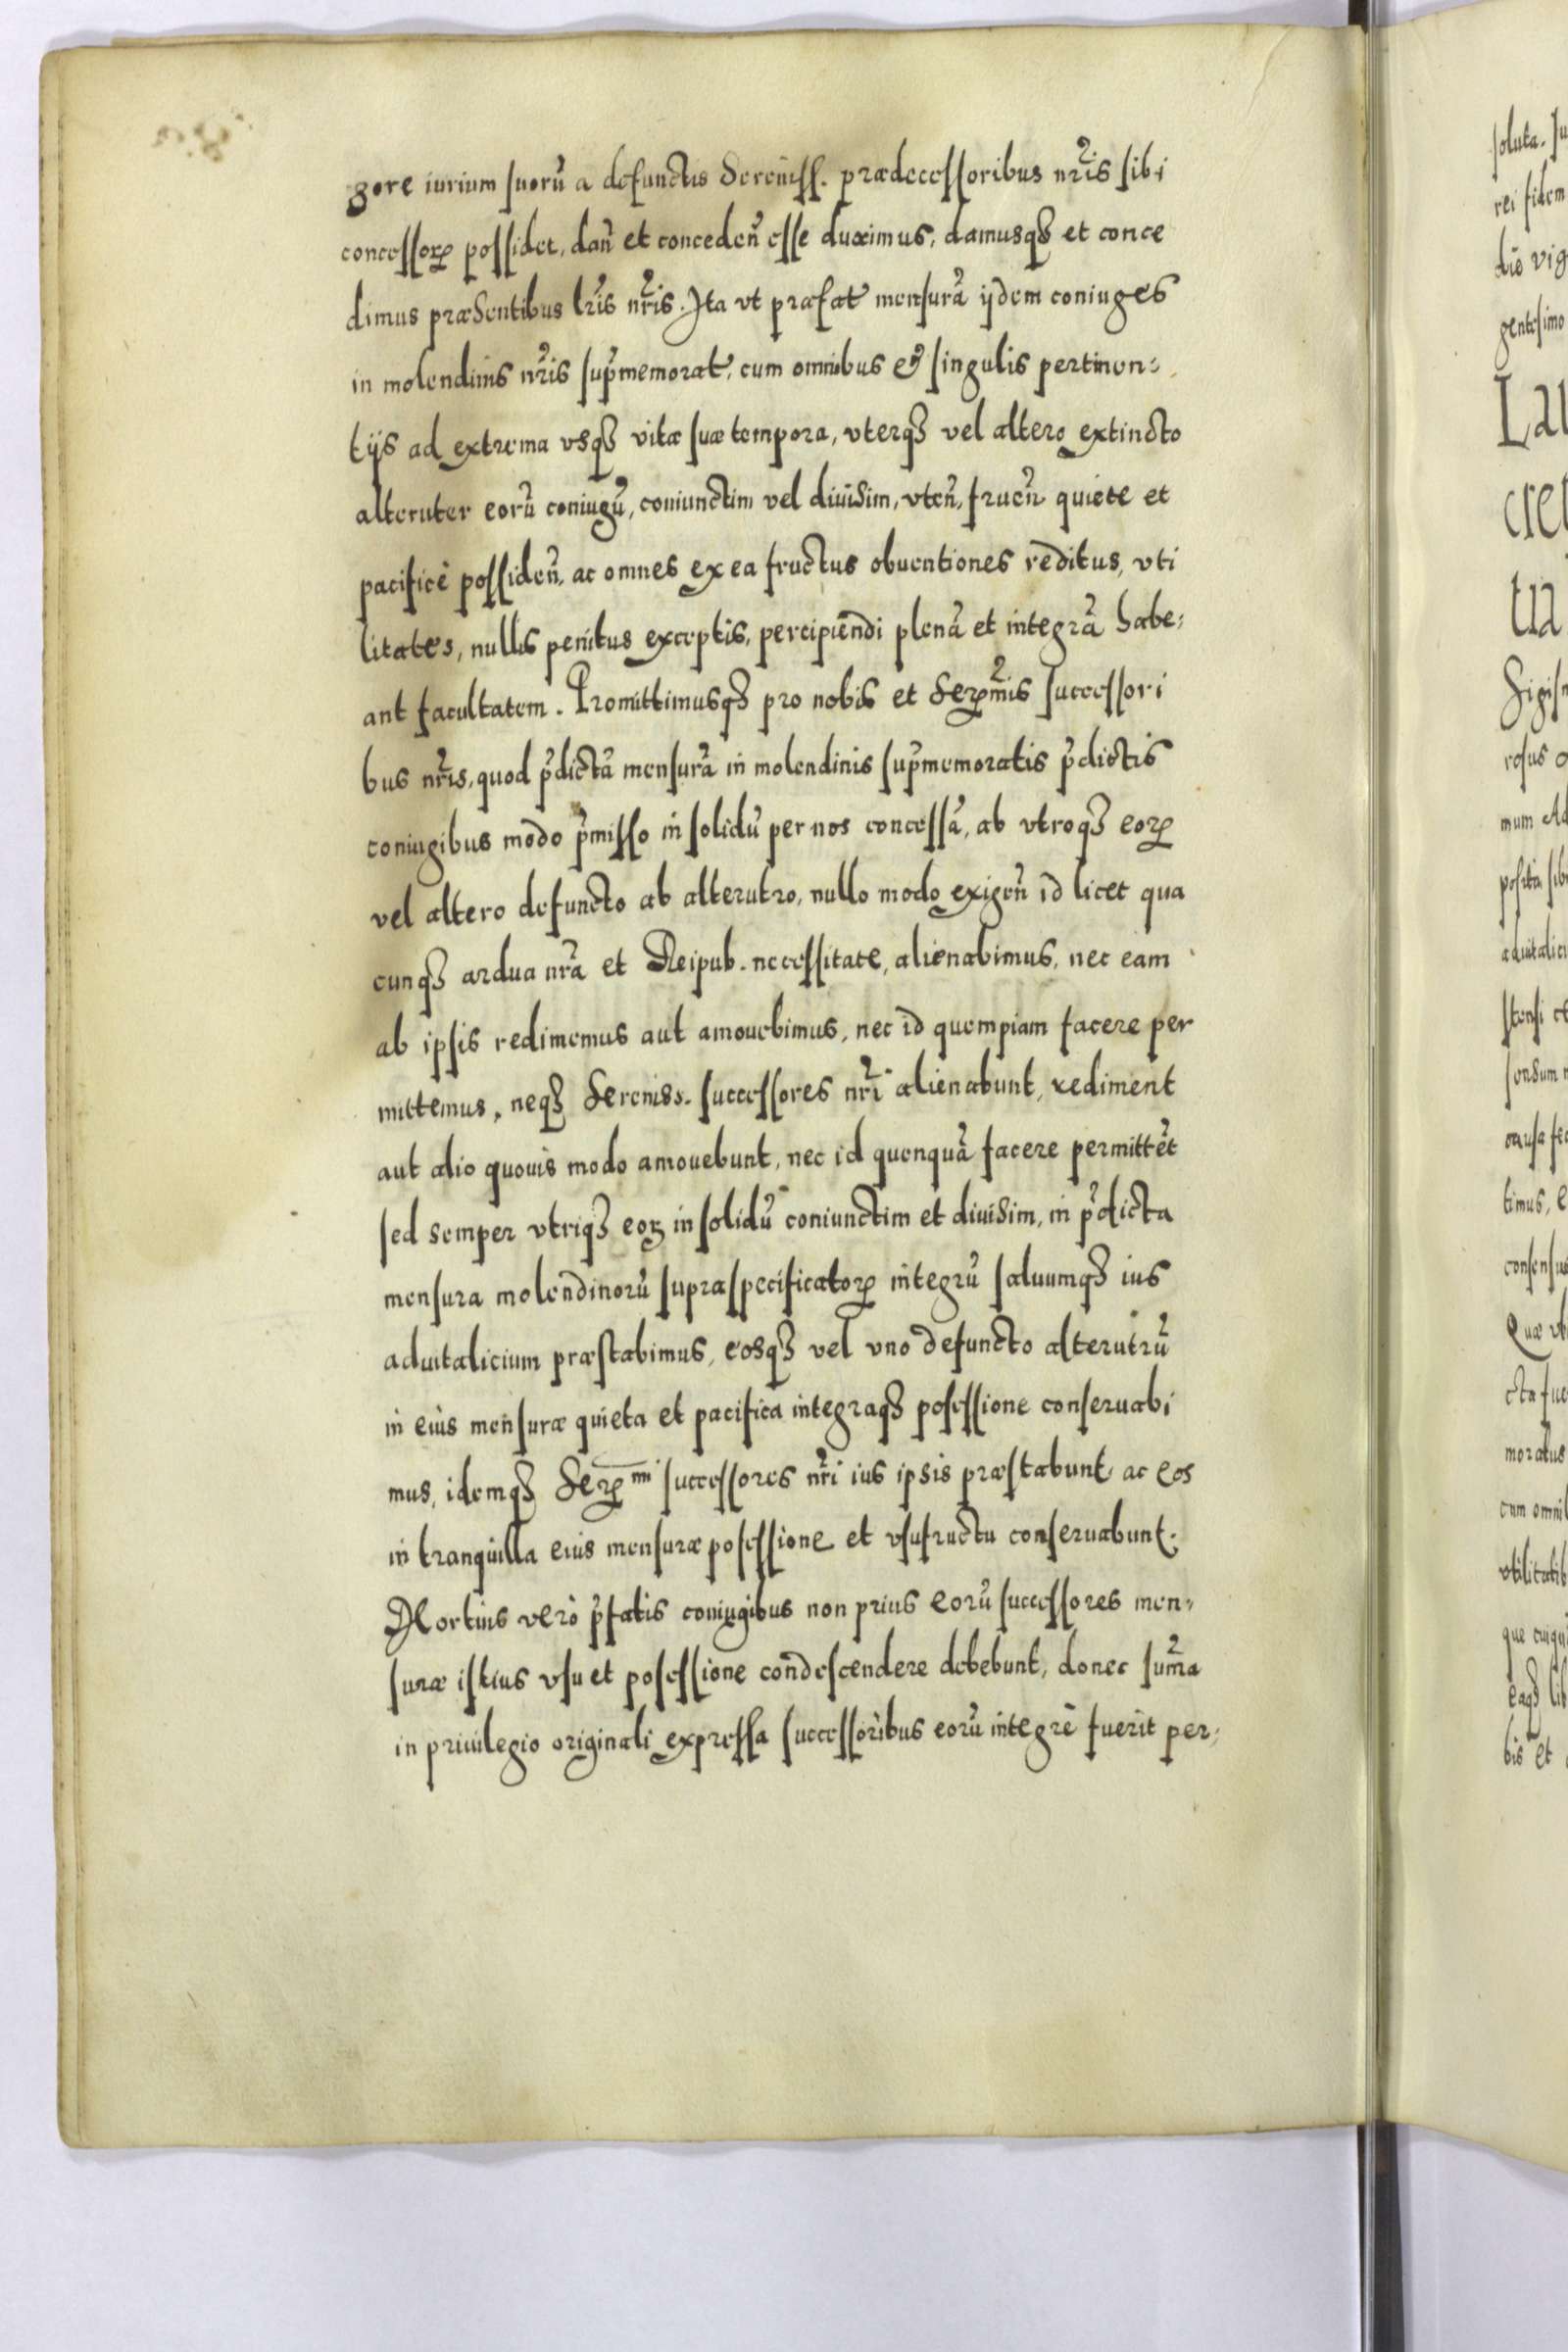 gore iurium suorũ a defunctis Sereniss. prædecessoribus nr̃is sibi
concessoꝝ possidet, dañ et conceden̄ esse duximus, damusqꝫ et conce
dimus præsentibus lr̃is nr̃is. Ita vt præfat mensurã ijdem coniuges
in molendinis nr̃is sup̃memorat, cum omnibus et singulis pertinen:
tijs ad extrema vsqꝫ vitæ suæ tempora, vterqꝫ vel altero extincto
alteruter eorũ coniugũ, coniunctim vel diuisim, vteñ, frueñ quiete et
pacificè possideñ, ac omnes ex ea fructus obuentiones reditus, vti
litates, nullis penitus exceptis, percipiendi plenã et integrã habe:
ant facultatem. Promittimusqꝫ pro nobis et Serꝝmis successori
bus nr̃is, quod p̃dictã mensurã in molendinis sup̃memoratis p̃dictis
coniugibus modo p̃misso in solidũ per nos concessã, ab vtroqꝫ eoꝝ
vel altero defuncto ab alterutro, nullo modo exigeñ id licet qua
cunqꝫ ardua nr̃a et Reipub. necessitate, alienabimus, nec eam
ab ipsis redimemus aut amouebimus, nec id quempiam facere per
mittemus, neqꝫ Sereniss. successores nr̃i alienabunt, rediment
aut alio quouis modo amouebunt, nec id quenquã facere permittẽt
sed semper vtriqꝫ eoꝝ in solidũ coniunctim et diuisim, in p̃dicta
mensura molendinorũ supraspecificatoꝝ integrũ saluumqꝫ ius
aduitalicium præstabimus, eosqꝫ vel vno defuncto alterutrũ
in eius mensuræ quieta et pacifica integraqꝫ posessione conseruabi
mus, idemqꝫ Serꝝmi successores nr̃i ius ipsis præstabunt ac eos
in tranquilla eius mensuræ posessione et vsufructu conseruabunt.
Mortuis verò p̃fatis coniugibus non prius eorũ successores men:
suræ istius vsu et posessione condescendere debebunt, donec sum̃a
in priuilegio originali expressa successoribus eorũ integrè fuerit per:
soluta. Iu
rei fidem
diẽ vig
gentesimo
Lau
cret
tia
Sigis
rosus
mum Ad
posita sib
aduitalici
stensi et
sensum
causa
timus,
consensu
Quæ vt
cta fue
moratus
cum omni
vtilitatib
que cuiqu
eaqꝫ lib
bis et